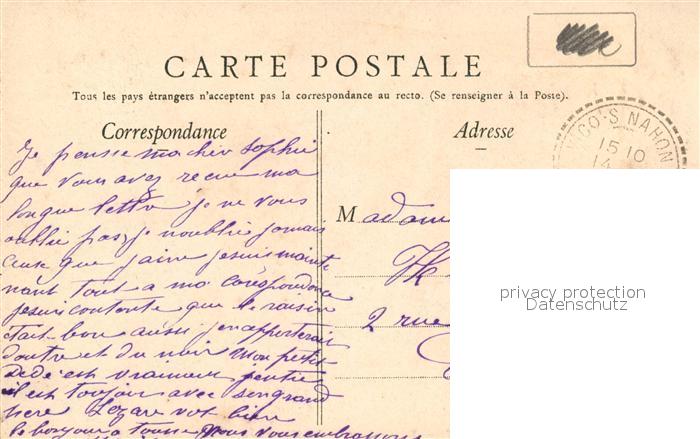 CARTE POSTALE
Tous les pays étrangers n'acceptent pas la correspondance au recto. (Se renseigner à la Poste).
Correspondance
Adresse
VICQ-S-NAHON
15 10
14
Je pense ma cher Sophie
que vous avez recue ma
longue lettre je ne vous
oublie pas, je noublie jamais
ceux que jaime jesuis mainte
nant tout a ma corespondance
jesuis contente que le raisin
etait bon aussi jen apporterai
dautre et du noir Mon petit
Dédé est vraiment gentie
il est toujour avec sengrand
pere Lozare vot bien
le bonjour a tousse Nous vous embrassons
Madam
2 rue
privacy protection
Datenschutz